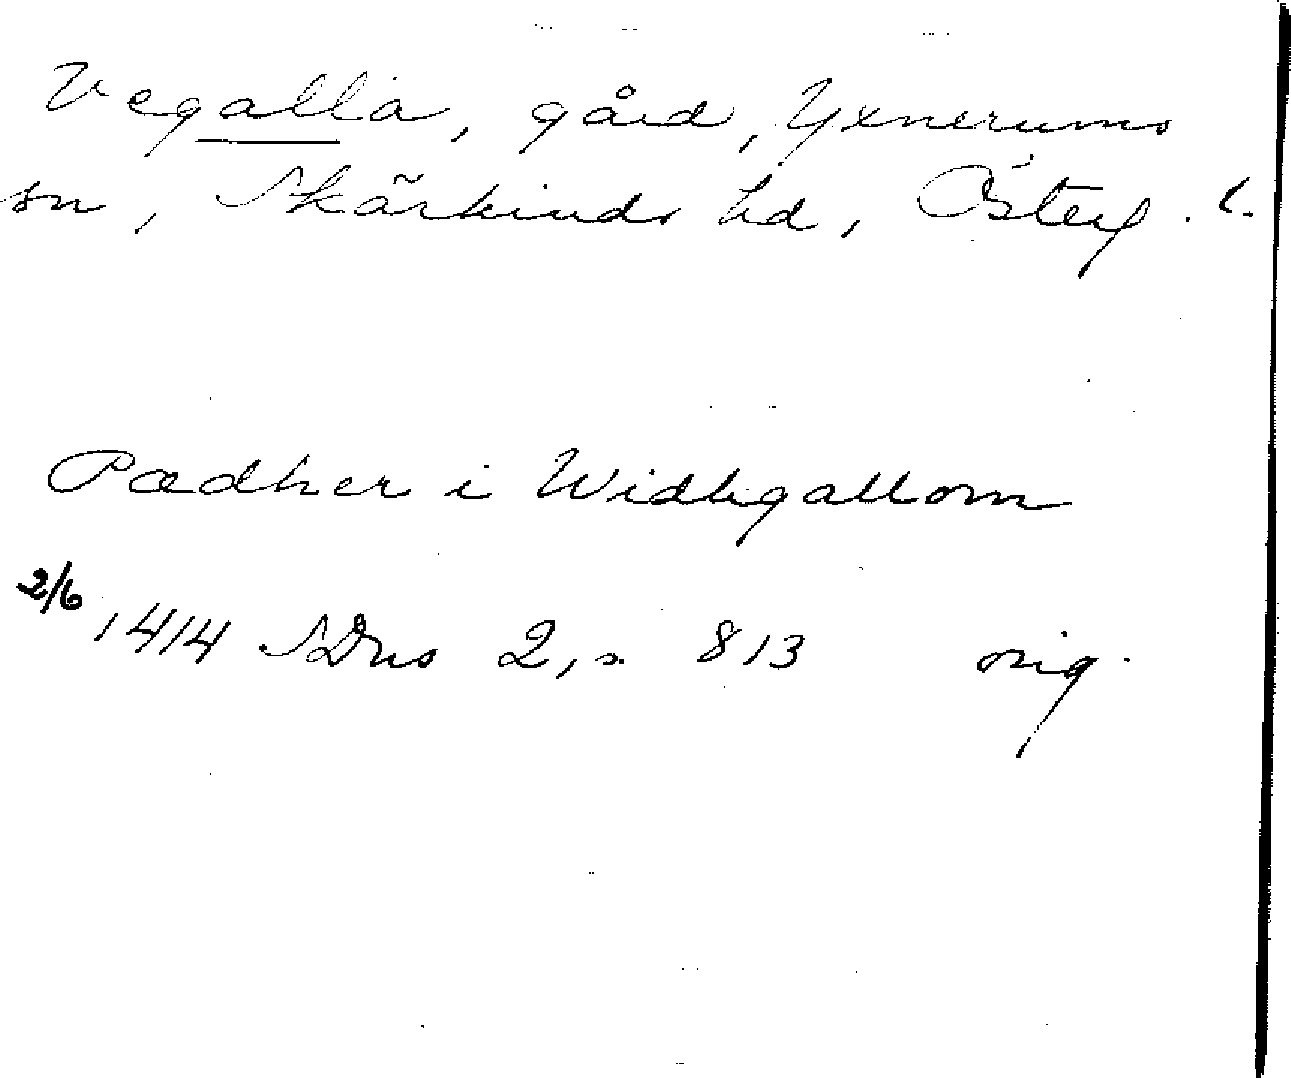 Vegalla, gård, Yxnerums
sn, Skärkinds hd, Österg. l.
Pædher i Widhgallom
2/6 1414 SDns 2, s. 813 orig.